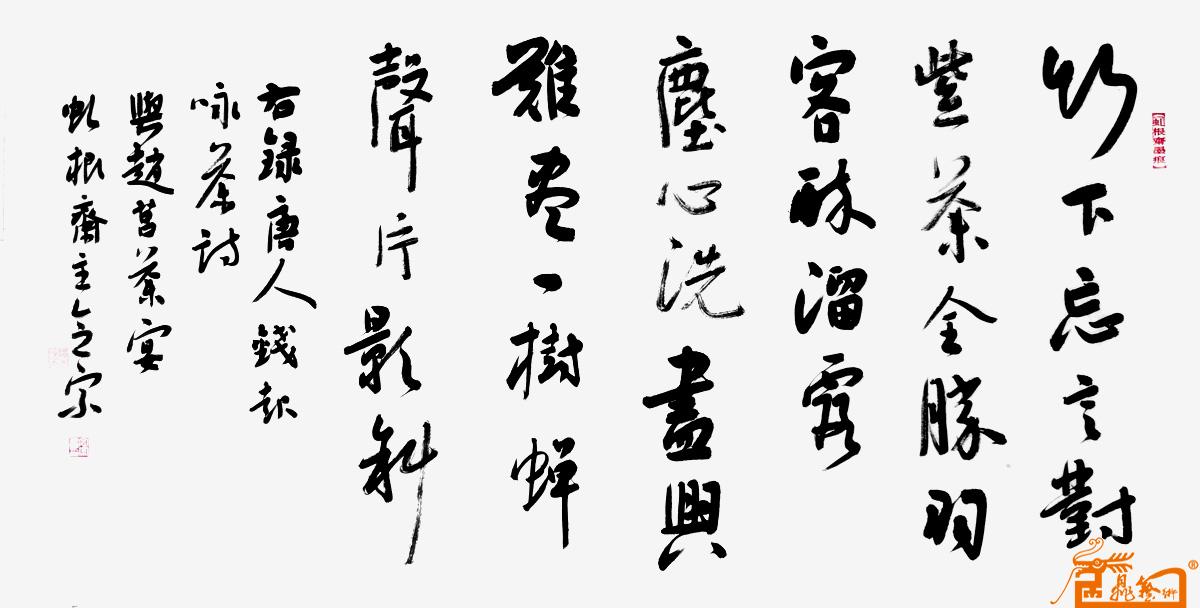 【虬根齋墨痕】
竹下忘言對
紫茶全勝羽
客醉溜霞
塵心洗盡興
難尽一樹蝉
聲片影斜
右録唐人錢起
咏茶詩
與趙莒茶宴
虬根齋主人之宗